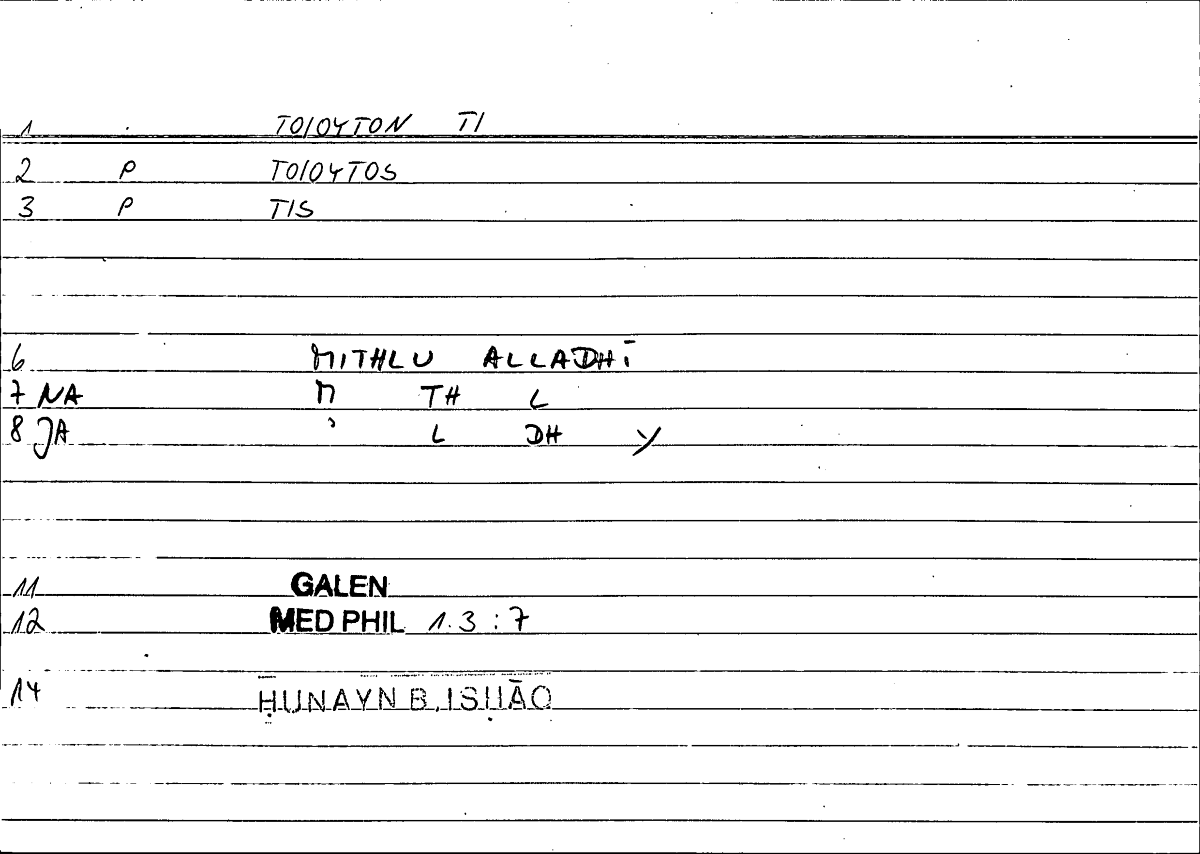 1 TOIOYTON TI
2 P TOIOYTOS
3 P TIS
6 MITHLU ALLADHĪ
7 NA M TH L
8 JA ʾ L DH Y
11 GALEN
12 MED PHIL 1.3 : 7
14 ḤUNAYN B. ISḤĀQ